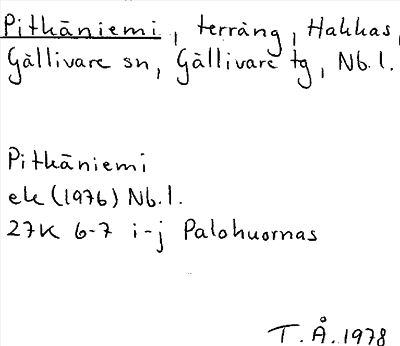 Pitkäniemi, terräng, Hakkas,
Gällivare sn, Gällivare tg, Nb.l.
Pitkäniemi
ek (1976) Nb.l.
27K 6-7 i-j Palohuornas
T.Å. 1978